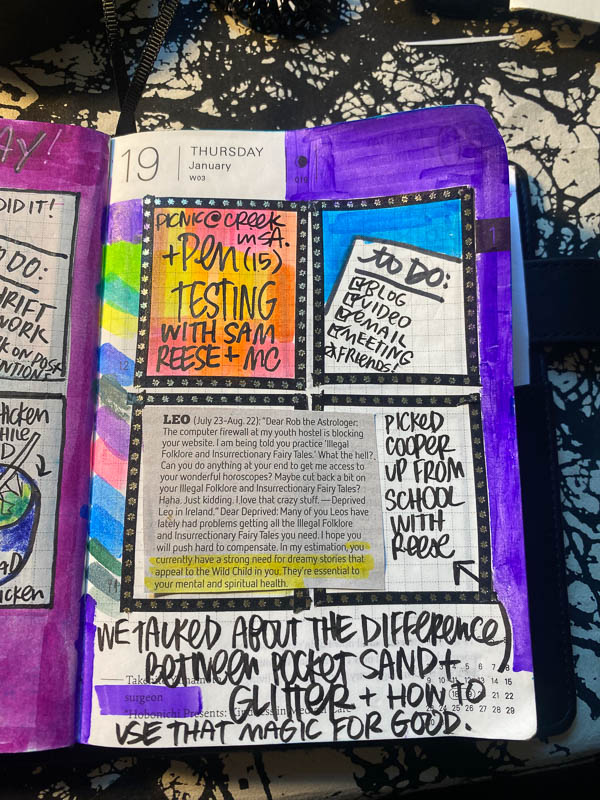 AY!
DID IT!
O DO:
HRIFT
WORK
K ON POST
NTIONS
CHICKEN
HILE
AD
CHICKEN
19
THURSDAY
January
W03
019
1
12
PICNIC @ CREEK
IN SA.
+ PEN (15)
TESTING
WITH SAM
REESE + MC
TO DO:
BLOG
VIDEO
EMAIL
MEETING
FRIENDS!
LEO (July 23-Aug. 22): "Dear Rob the Astrologer:
The computer firewall at my youth hostel is blocking
your website. I am being told you practice 'Illegal
Folklore and Insurrectionary Fairy Tales.' What the hell?
Can you do anything at your end to get me access to
your wonderful horoscopes? Maybe cut back a bit on
your Illegal Folklore and Insurrectionary Fairy Tales?
Haha. Just kidding. I love that crazy stuff. —Deprived
Leo in Ireland." Dear Deprived: Many of you Leos have
lately had problems getting all the Illegal Folklore
and Insurrectionary Fairy Tales you need. I hope you
will push hard to compensate. In my estimation, you
currently have a strong need for dreamy stories that
appeal to the Wild Child in you. They're essential to
your mental and spiritual health.
PICKED
COOPER
UP FROM
SCHOOL
WITH
REESE
WE TALKED ABOUT THE DIFFERENCE
BETWEEN POCKET SAND +
GLITTER + HOW TO
USE THAT MAGIC FOR GOOD.
surgeon
"Hobonichi Presents:
5 6 7 8
18 19 20 21 22
23 24 25 26 27 28 29